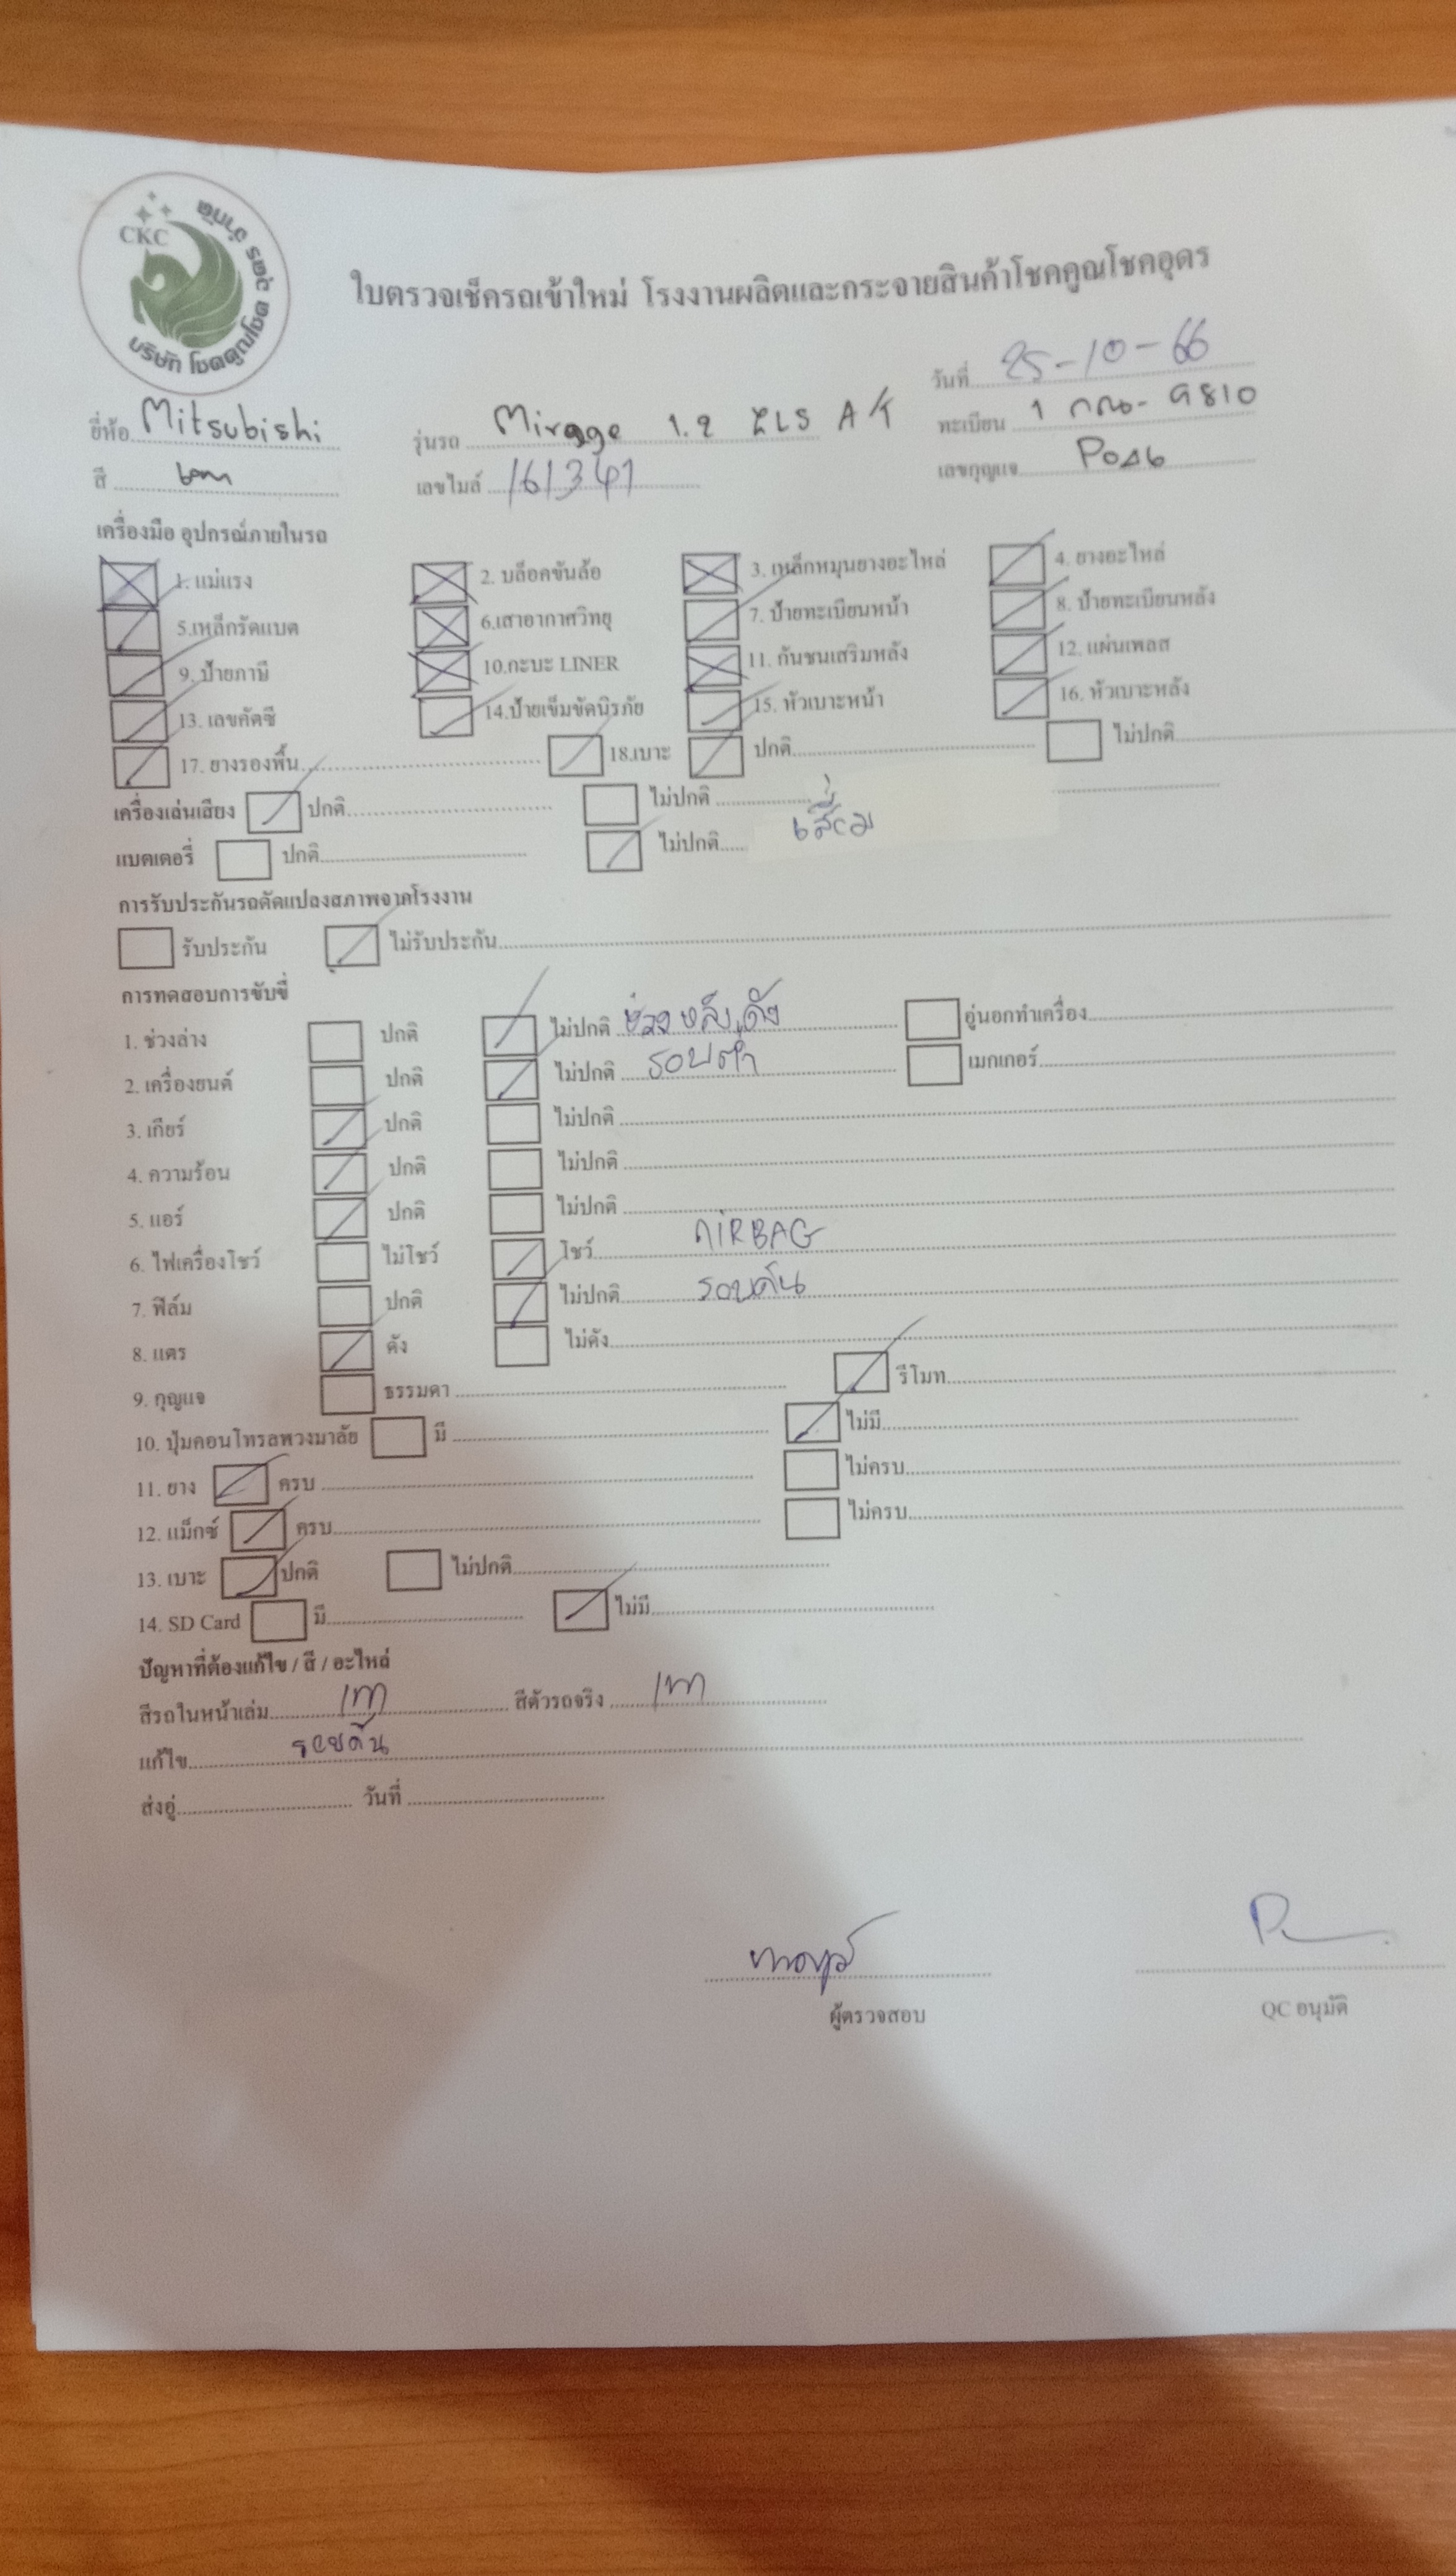 CKC
บริษัท โชคคูณโชค อุดร จำกัด
ใบตรวจเช็ครถเข้าใหม่ โรงงานผลิตและกระจายสินค้าโชคคูณโชคอุดร
วันที่ 25-10-66
ยี่ห้อ Mitsubishi รุ่นรถ Mirage 1.2 GLS A/T ทะเบียน 1 กณ- 9810
สี เทา เลขไมล์ 161341 เลขกุญแจ
เครื่องมือ อุปกรณ์ภายในรถ
1. แม่แรง 2. บล็อคขันล้อ 3. เหล็กหมุนยางอะไหล่ 4. ยางอะไหล่
5.เหล็กรัดแบต 6.เสาอากาศวิทยุ 7. ป้ายทะเบียนหน้า 8. ป้ายทะเบียนหลัง
9. ป้ายภาษี 10.กะบะ LINER 11. กันชนเสริมหลัง 12. แผ่นเพลส
13. เลขคัตซี 14.ป้ายเข็มขัดนิรภัย 15. หัวเบาะหน้า 16. หัวเบาะหลัง
17. ยางรองพื้น 18.เบาะ ปกติ ไม่ปกติ
เครื่องเล่นเสียง ปกติ ไม่ปกติ
แบตเตอรี่ ปกติ ไม่ปกติ เสื่อม
การรับประกันรถดัดแปลงสภาพจากโรงงาน
รับประกัน ไม่รับประกัน
การทดสอบการขับขี่
1. ช่วงล่าง ปกติ ไม่ปกติ ช่วงหลังดัง อู่นอกทำเครื่อง
2. เครื่องยนต์ ปกติ ไม่ปกติ รอบต่ำ เมกเกอร์
3. เกียร์ ปกติ ไม่ปกติ
4. ความร้อน ปกติ ไม่ปกติ
5. แอร์ ปกติ ไม่ปกติ
6. ไฟเครื่องโชว์ ไม่โชว์ โชว์ AIRBAG
7. ฟิล์ม ปกติ ไม่ปกติ รอบคัน
8. แตร ดัง ไม่ดัง
9. กุญแจ ธรรมดา รีโมท
10. ปุ่มคอนโทรลพวงมาลัย มี ไม่มี
11. ยาง ครบ ไม่ครบ
12. แม็กซ์ ครบ ไม่ครบ
13. เบาะ ปกติ ไม่ปกติ
14. SD Card มี ไม่มี
ปัญหาที่ต้องแก้ไข / สี / อะไหล่
สีรถในหน้าเล่ม เทา สีตัวรถจริง เทา
แก้ไข รอบคัน
ส่งอู่ วันที่
ผู้ตรวจสอบ QC อนุมัติ